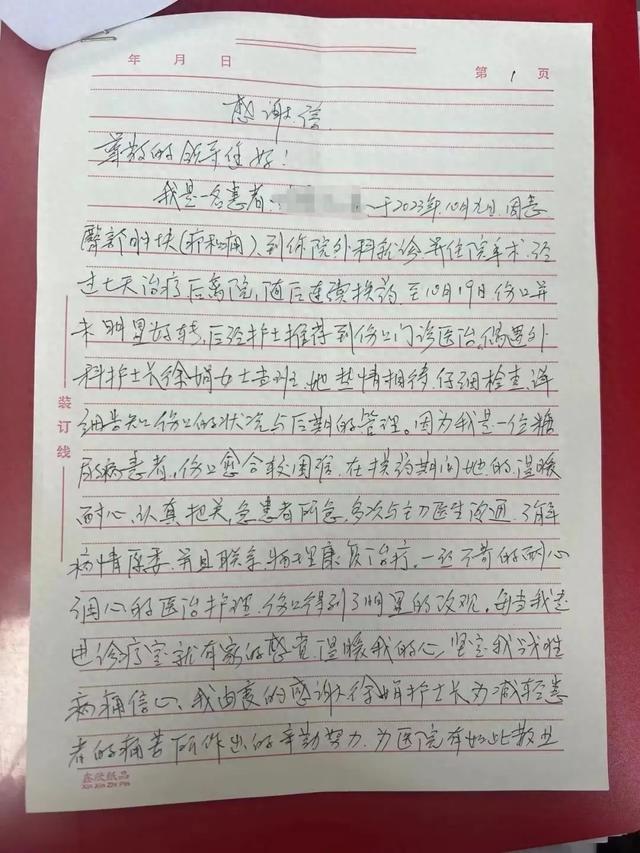 年 月 日
第 1 页
感谢信
尊敬的领导您好!
我是一名患者 于2023年10月九日,因患
臀部肿块(疖和痛)、到你院外科就诊并住院手术,经
过七天治疗后离院,随后连续换药,至10月19日伤口并
未明显好转,后经护士推荐到伤口门诊医治,偶遇外
科护士长徐娟女士当班,她热情相待,仔细检查、详
细告知伤口的状况与后期的管理。因为我是一位糖
尿病患者,伤口愈合较困难,在换药期间她的温暖
耐心、认真把关,急患者所急,多次与主刀医生沟通,了解
病情原委,并且联系物理康复治疗,一丝不苟的耐心
细心的医治护理,伤口得到了明显的改观,每当我走
进诊疗室就有家的感觉,温暖我的心,坚定我战胜
病痛信心、我由衷的感谢徐娟护士长为减轻患
者的痛苦所作出的辛勤努力,为医院有如此敬业
装订线
鑫欣纸品
XIN XIN ZHI PIN